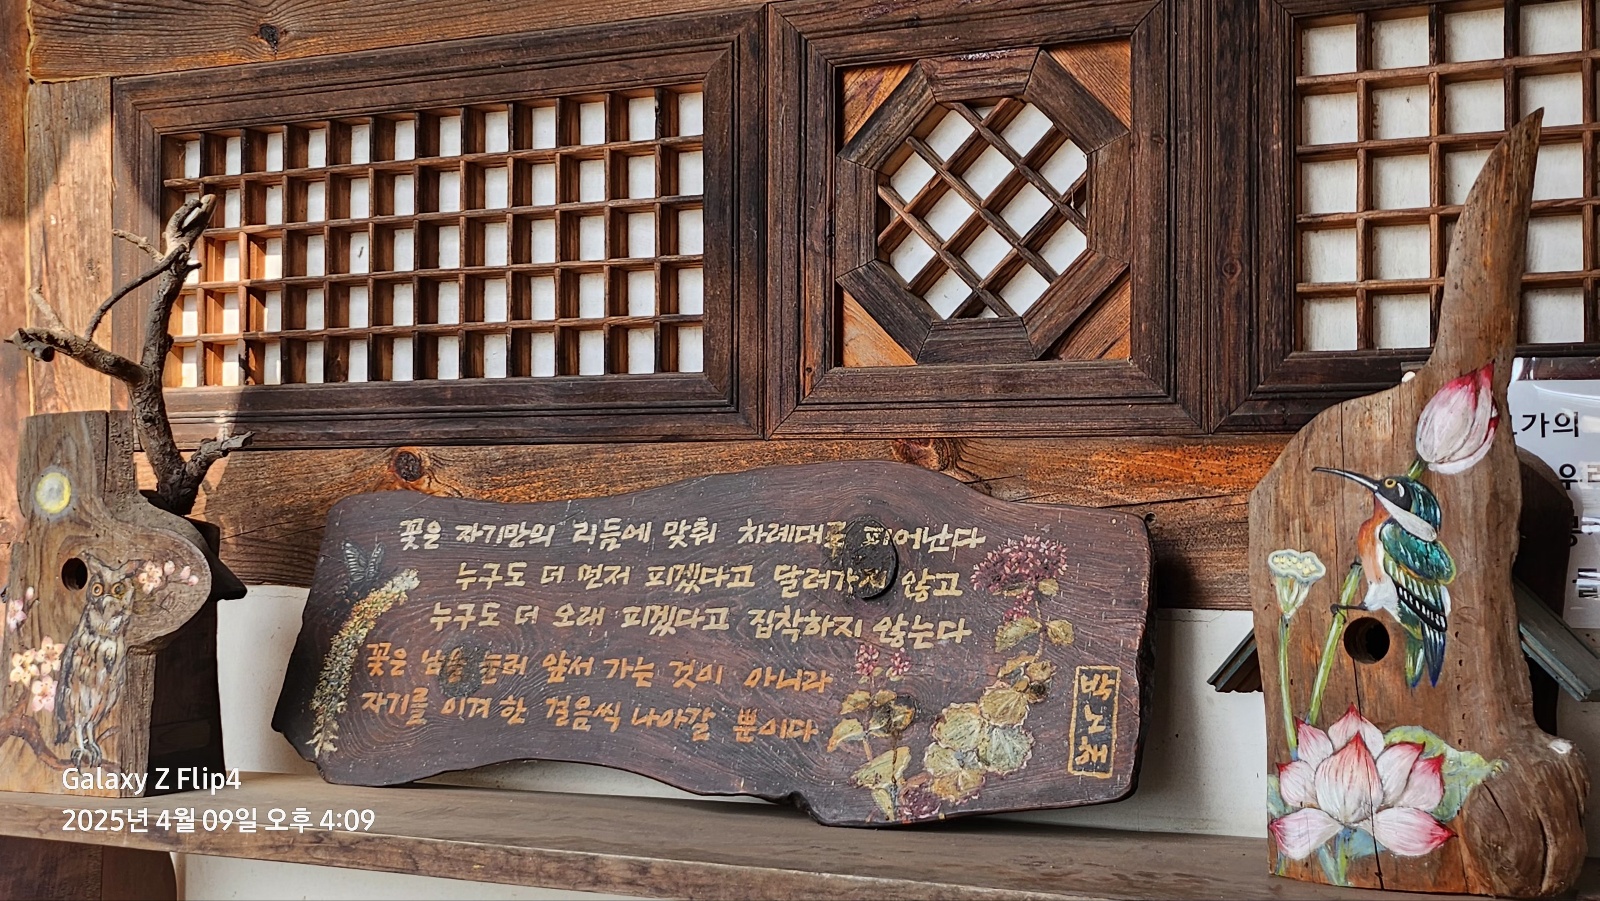 꽃은 자기만의 리듬에 맞춰 차례대로 피어난다
누구도 더 먼저 피겠다고 달려가지 않고
누구도 더 오래 피겠다고 집착하지 않는다
꽃은 남을 눌러 앞서 가는 것이 아니라
자기를 이겨 한 걸음씩 나아갈 뿐이다
박노해
가의
우리
Galaxy Z Flip4
2025년 4월 09일 오후 4:09